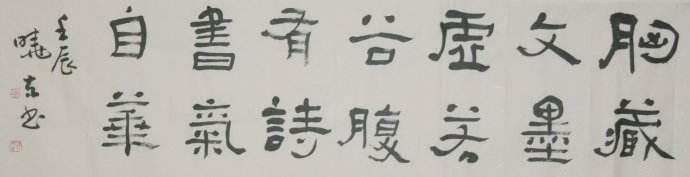 胸藏
文墨
虚若
谷腹
有詩
書氣
自華
壬辰
曉东书